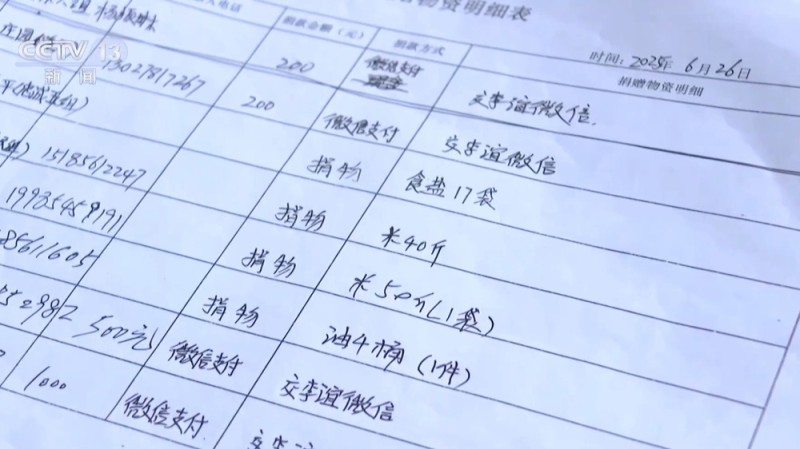 物资明细表
时间：2025年6月26日
CCTV 13
新闻
人电话 捐款金额（元） 捐款方式 捐赠物资明细
13027817267 200 微信支付 交李谊微信.
200 微信支付 交李谊微信
15185612247 捐物 食盐17袋
19985459191 捐物 米40斤
85611605 捐物 米50斤（1袋）
捐物 油4桶（1件）
52982 500元 微信支付 交李谊微信
1000 微信支付 交李谊